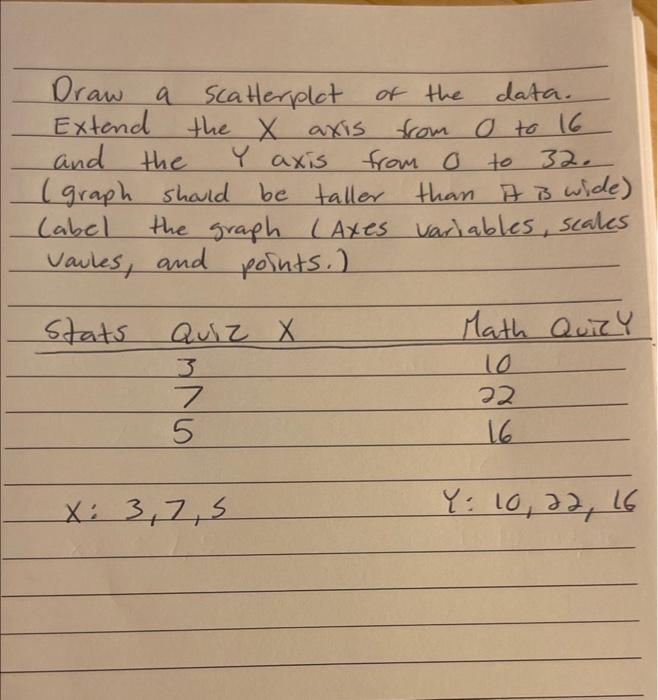 Draw a scatterplot of the data.
Extend the X axis from 0 to 16
and the Y axis from 0 to 32.
(graph should be taller than it is wide)
Label the graph (Axes variables, scales
vaules, and points.)
Stats Quiz X Math Quiz Y
3 10
7 22
5 16
X: 3,7,5 Y: 10, 22, 16